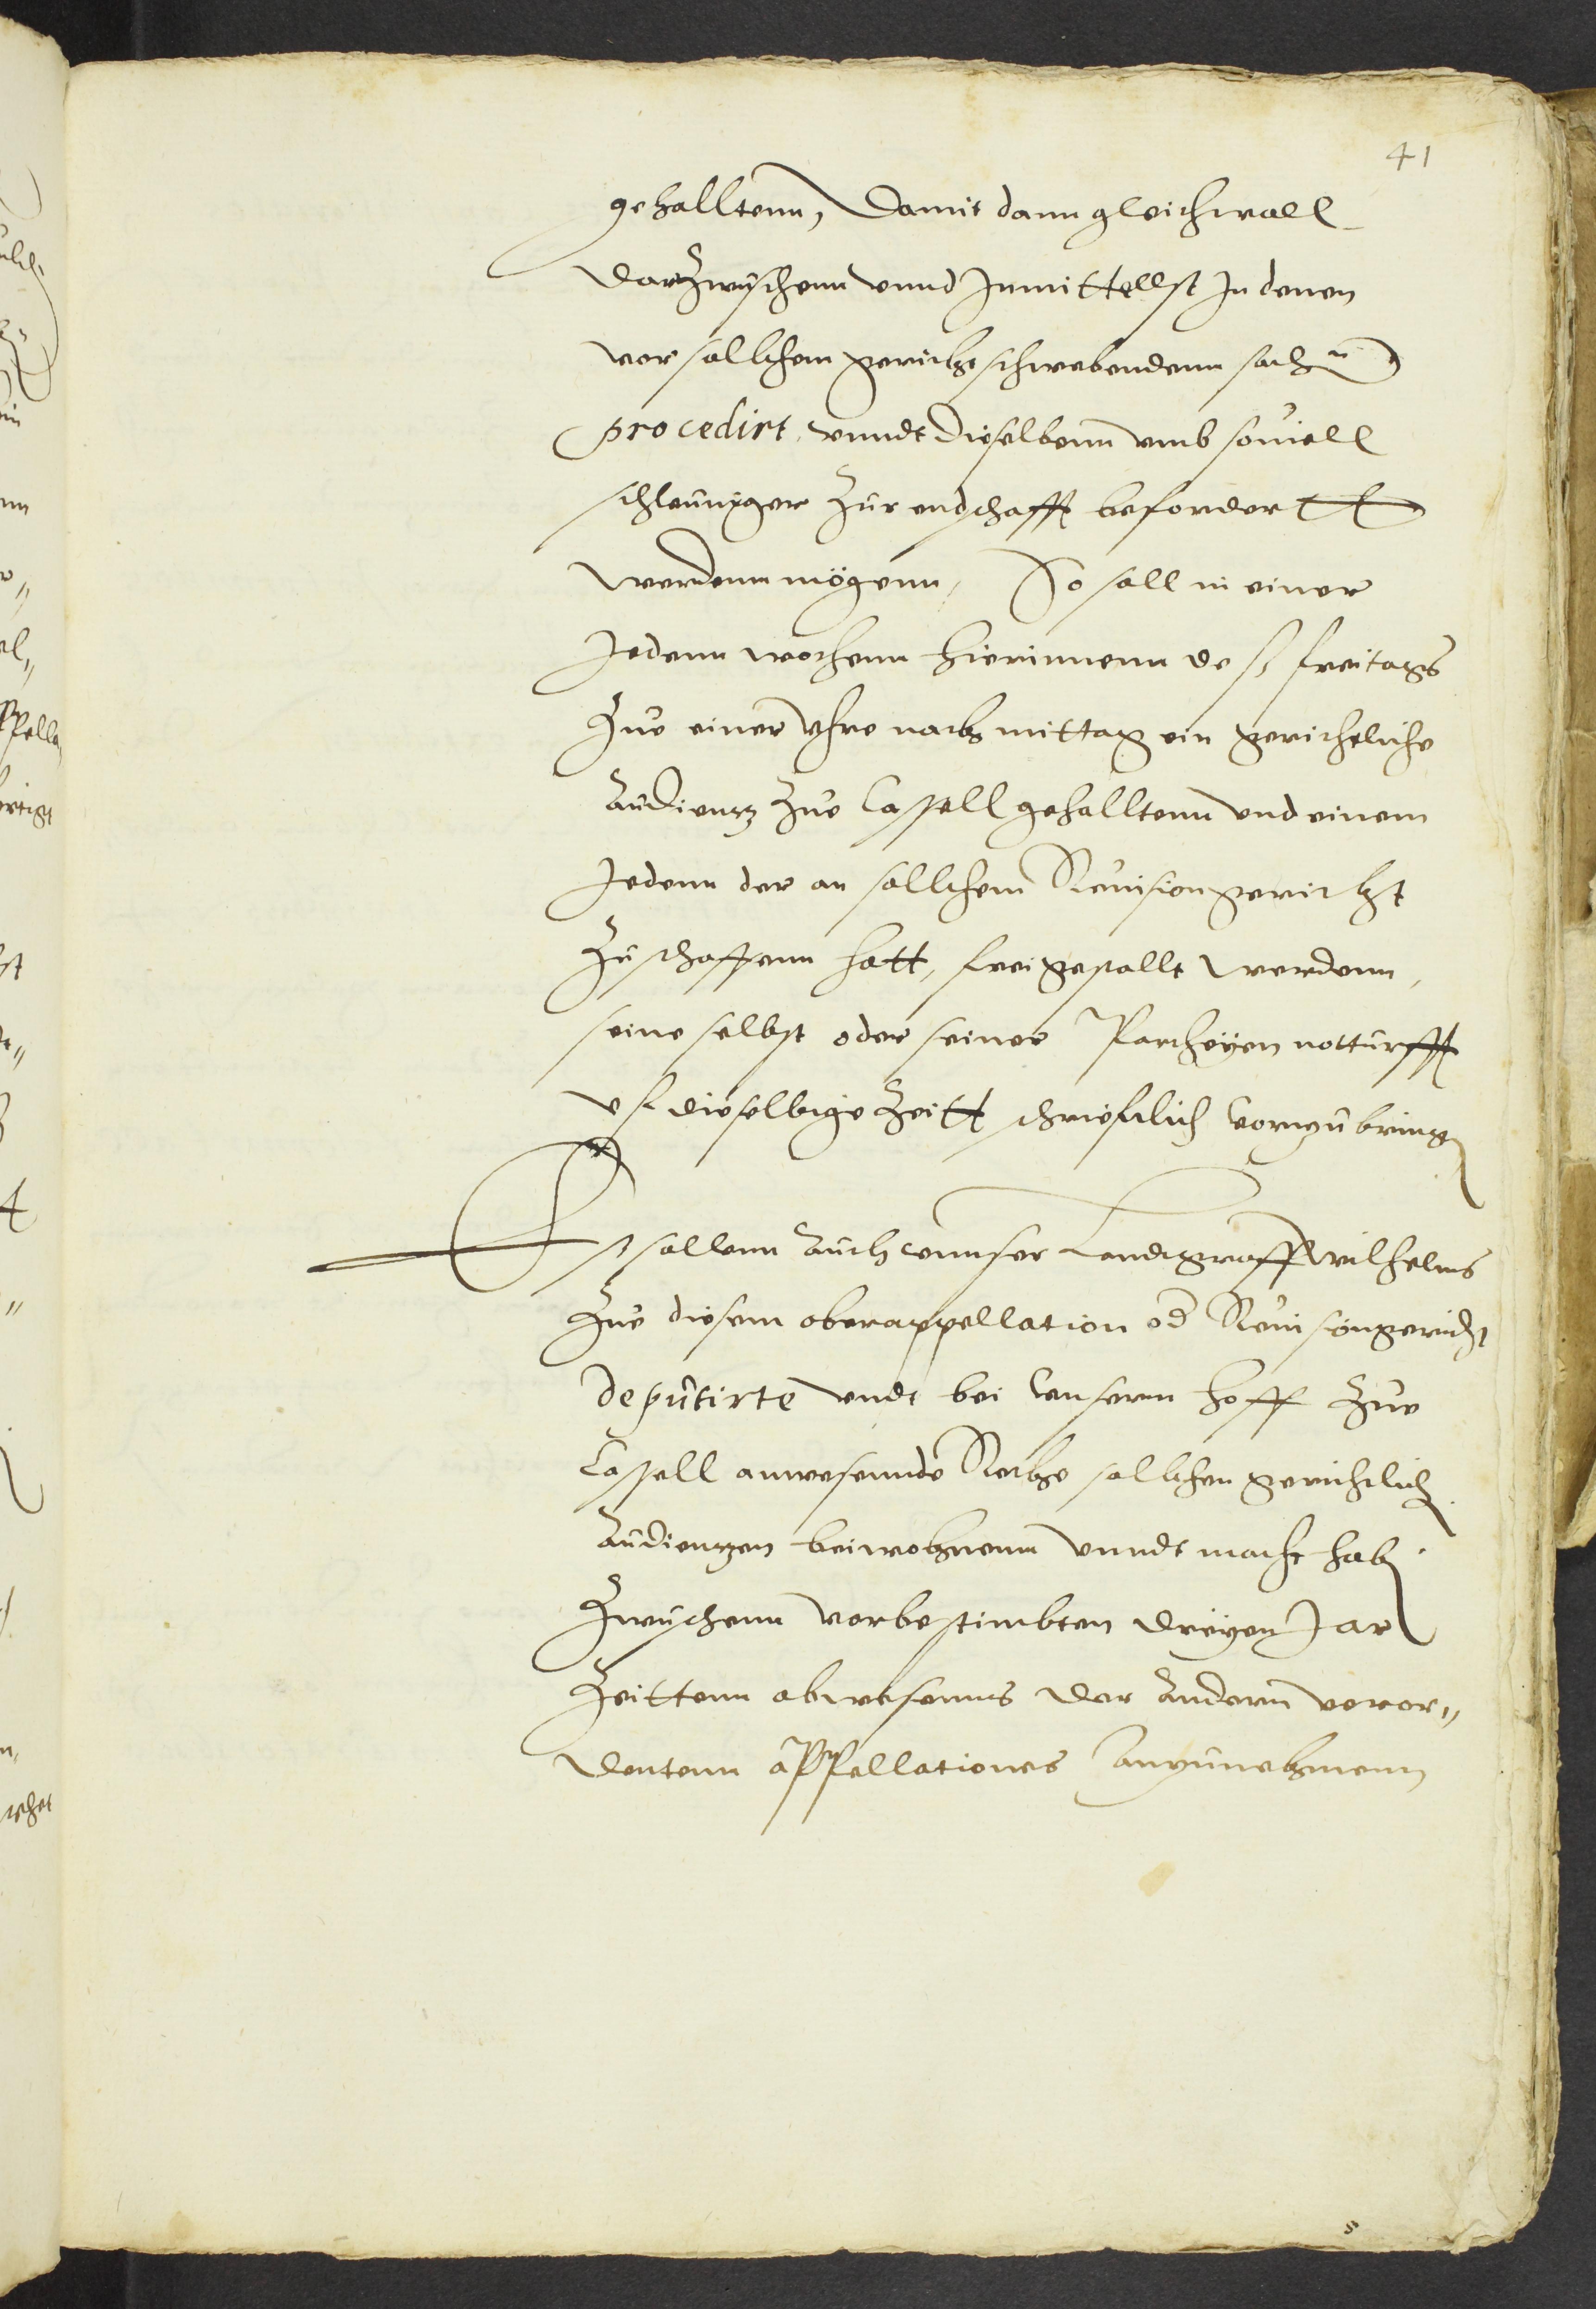 41
gehalltenn, Damit dann gleichwoll
Darzwischenn vnnd Inmittellst In denen
vor sollchem gericht schwebendenn sachen
procedirt vnndt dieselbenn vmb souiell
schleuniger Zur endschafft befordertt
werdenn mögenn, So soll in einer
Jedenn wochenn hierinnenn deß freitags
Zue einer Vhre nach mittag ein gerichtliche
Audientz Zue Cassell gehalltenn vnd einem
Jedenn der an sollchem Reuision gericht
Zu schaffenn hatt, frei gestallt werdenn,
seine selbst oder seiner Partheyen notturfft
vf dieselbige Zeitt schriefftlich vorzubringen
Es sollenn Auch vnnser Landtgraff Wilhelms
Zue diesem oberappellation od Reuision gericht
deputirte vndt bei vnserm hoff Zue
Cassell anwesennde Rethe sollchen gerichtlichen
Audientzen beiwohnenn vnndt macht haben
Zwischenn vorbestimbten dreyen Jar
Zeittenn abwesenns der Andern veror„
dentenn Appellationes anzunehmenn